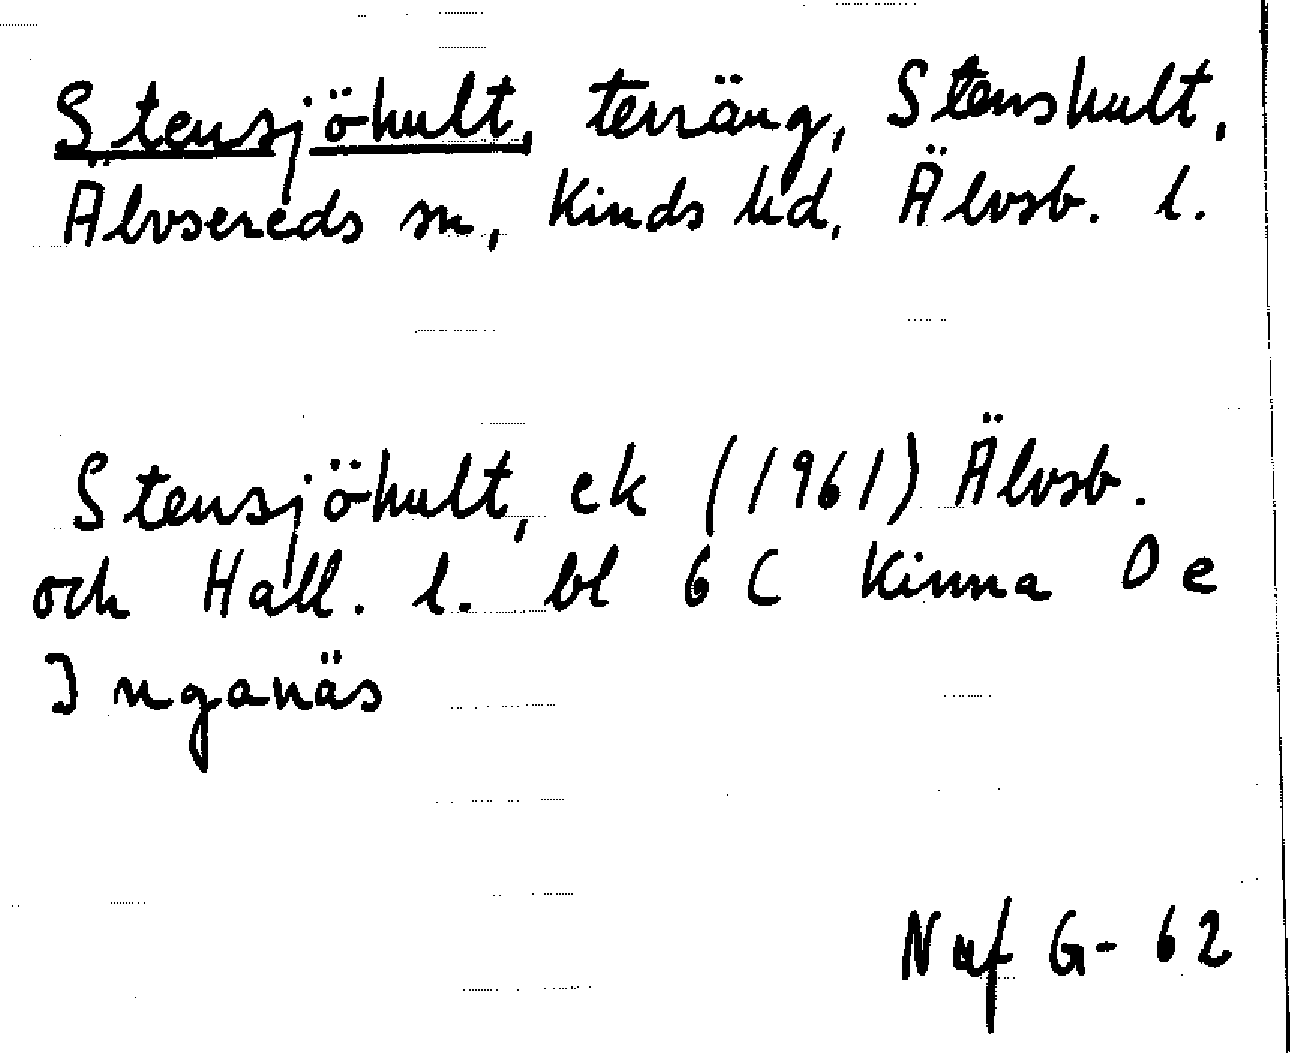 Stensjöhult, terräng, Stenshult,
Älvsereds sn, Kinds hd, Älvsb. l.
Stensjöhult, ek (1961) Älvsb.
och Hall. l. bl 6 C Kinna 0 e
Inganäs
Naf G- 62